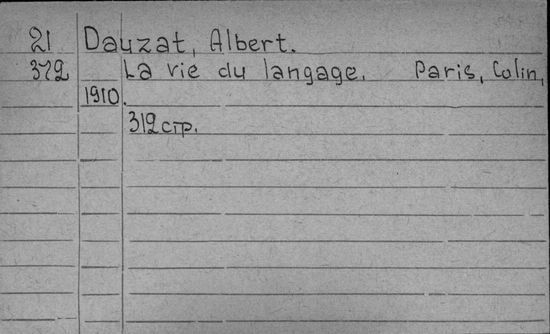 21 Dauzat, Albert.
372 La vie du langage. Paris, Colin,
1910.
312 стр.